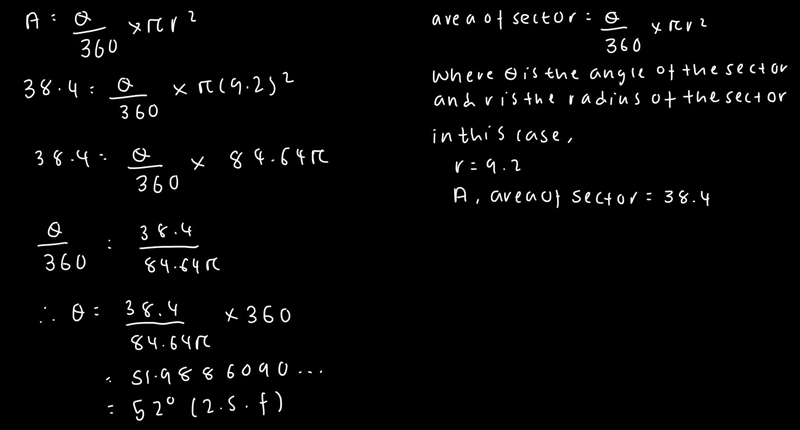 A = θ/360 × πr²
38.4 = θ/360 × π(9.2)²
38.4 = θ/360 × 84.64π
θ/360 = 38.4/84.64π
∴ θ = 38.4/84.64π × 360
= 51.9886090...
= 52° (2.s.f)
area of sector = θ/360 × πr²
where θ is the angle of the sector
and r is the radius of the sector
in this case,
r = 9.2
A, area of sector = 38.4